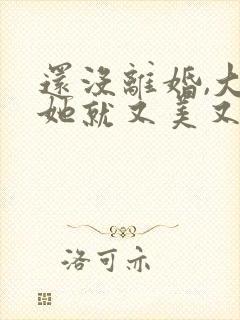 還沒離婚,大
她就又美又
洛可亦